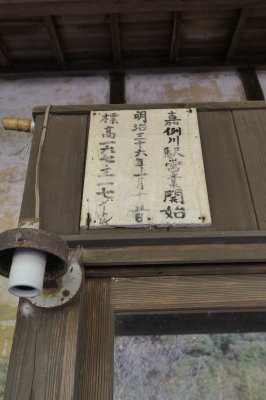 嘉例川駅営業開始
明治三十六年一月十五日
標高一六七.三一七メートル